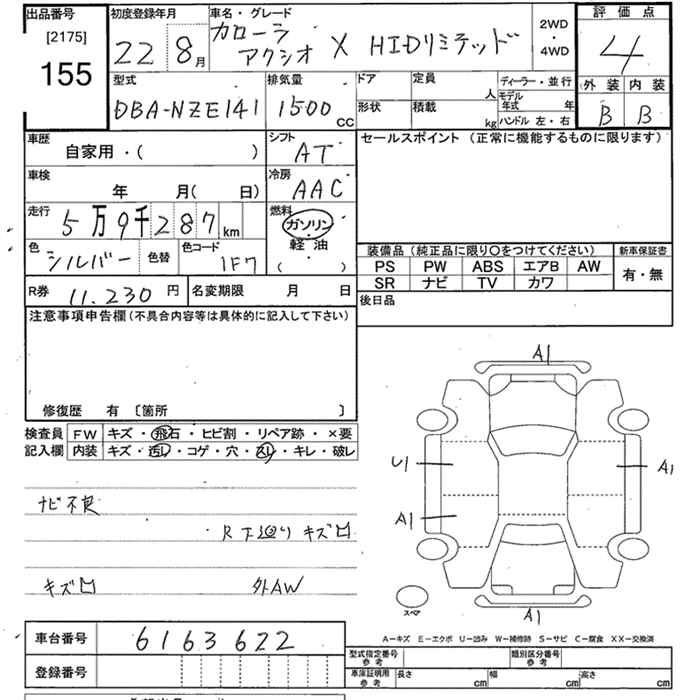 出品番号 初度登録年月 車名・グレード 2WD・4WD 評価点
[2175] 155 22 8月 カローラ アクシオ X HIDリミテッド 4
型式 排気量 ドア 定員 人 ディーラー・並行 外装 内装
DBA-NZE141 1500cc 形状 積載 kg モデル年式 年 ハンドル 左・右 B B
車歴 自家用・( ) シフト AT セールスポイント (正常に機能するものに限ります)
車検 年 月( 日) 冷房 AAC
走行 5万9千287km 燃料 ガソリン・軽油
色 シルバー 色替 色コード 1F7 ( ・ )
装備品(純正品に限り○をつけてください) 新車保証書
PS PW ABS エアB AW 有・無
SR ナビ TV カワ
R券 11.230円 名変期限 月 日 後日品
注意事項申告欄(不具合内容等は具体的に記入して下さい)
修復歴 有 〔箇所 〕
検査員 FW キズ・飛石・ヒビ割・リペア跡・×要
記入欄 内装 キズ・汚レ・コゲ・穴・スレ・キレ・破レ
ナビ不良
R下廻りキズ凹
キズ凹 外AW
A1
U1 A1
A1
スペア A1
A―キズ E―エクボ U―凹み W―補修跡 S―サビ C―腐食 XX―交換済
車台番号 6163622
登録番号
型式指定番号 参考 類別区分番号 参考
車庫証明用 参考 長さ cm 幅 cm 高さ cm